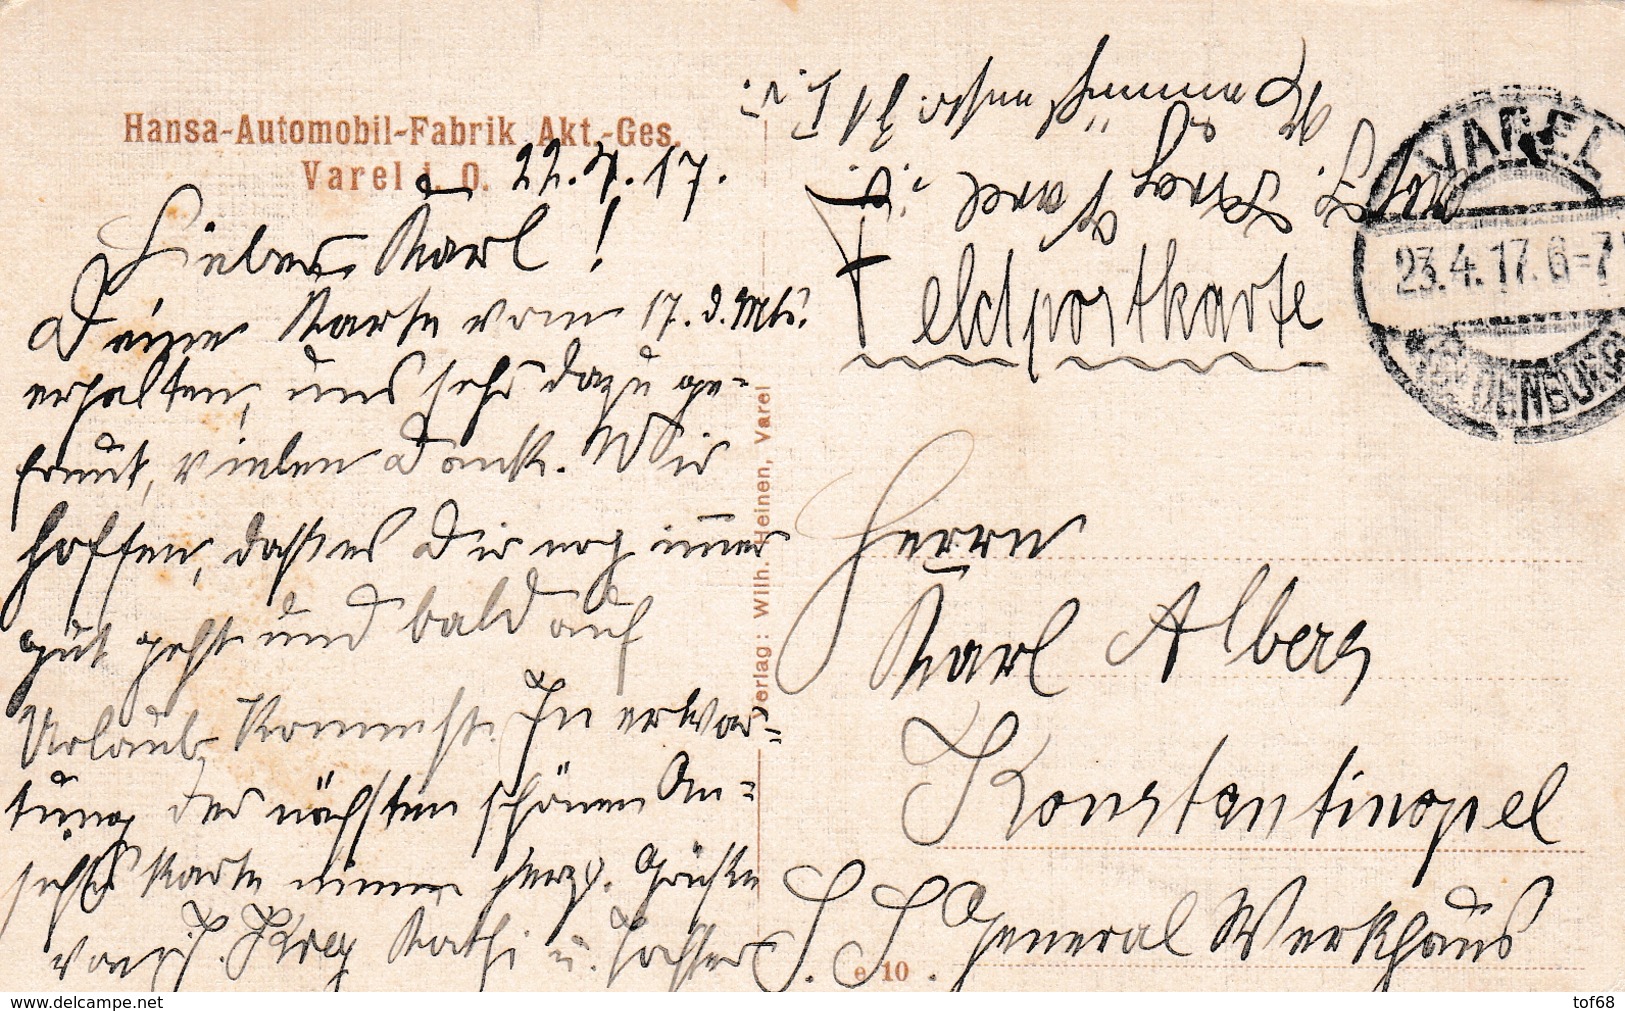 Hansa-Automobil-Fabrik Akt.-Ges.
Varel i. O.
22.4.17.
Lieber Karl!
Deine Karte vom 17. d. Mts.
erhalten, uns sehr dazu ge-
freut, vielen Dank. Wir
hoffen, dass es Dir noch immer
gut geht und bald auf
Urlaub kommst. In erwar-
tung der nächsten schönen An-
sichts Karte nimm herzl. Grüße
von
Käthi u.
Verlag: Wilh. Heinen, Varel
Feldpostkarte
Varel i.
VAREL
23.4.17. 6-7
OLDENBURG
Herrn
Karl Alberg
Konstantinopel
General Werkhaus
e 10
delcampe.net
tof68